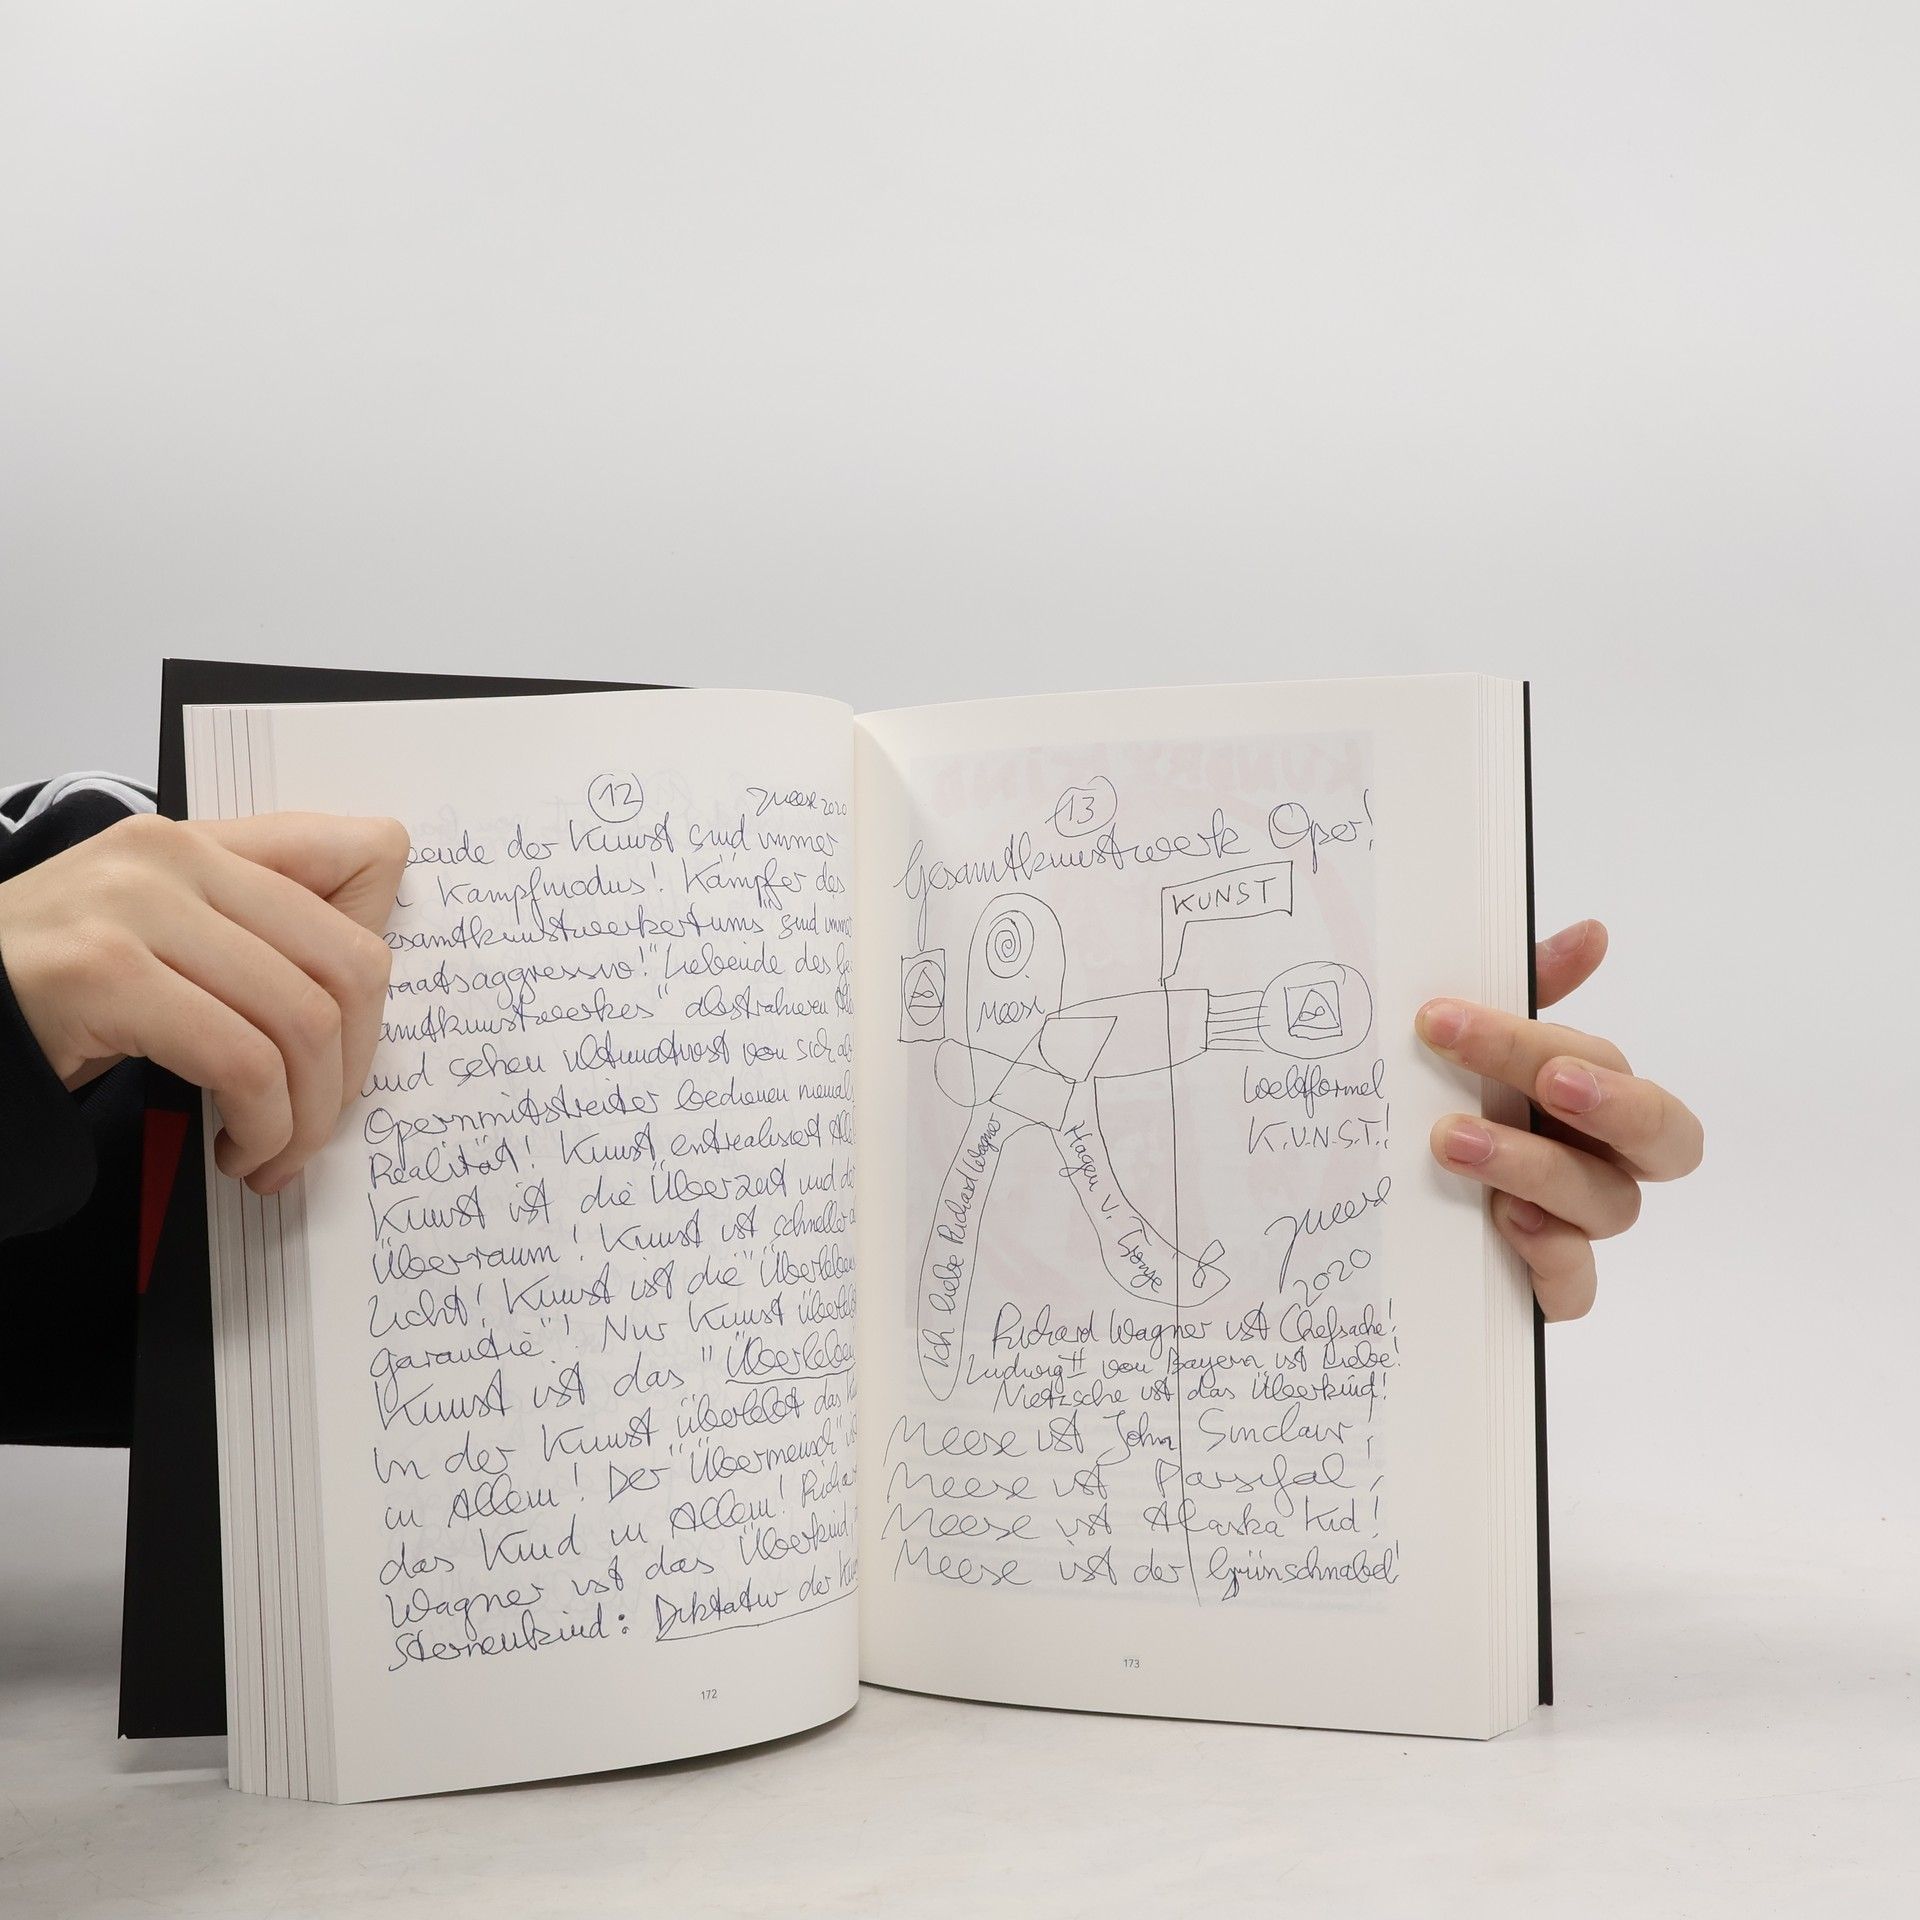 12
Meese 2020
der Kunst sind immer
Kampfmodus! Kämpfer des
samtkunstwerkertums" sind imm
raatsaggressiv!" Liebende des Ge
amtkunstwerkes" abstrahieren
und sehen ultimativst von sich ab
Opernmitstreiter bedienen niemals
Realität! Kunst entrealisiert
Kunst ist die Überzeit und de
Überraum! Kunst ist schneller
Licht! Kunst ist die "Überleben
garantie"! Nur Kunst überlebt
Kunst ist das "Überleben
in der Kunst überlebt das
in Allem! Der "Übermensch"
das Kind in Allem! Richa
Wagner ist das Überkind,
Sternenkind: Diktatur der Kun
172
13
Gesamtkunstwerk Oper!
KUNST
Meese
Weltformel
K.U.N.S.T.!
Ich liebe Richard Wagner
Hagen v. Tronje
Meese
2020
Richard Wagner ist Chefsache!
Ludwig II von Bayern ist Liebe!
Nietzsche ist das Überkind!
Meese ist John Sinclair!
Meese ist Parsifal!
Meese ist Alaska Kid!
Meese ist der Grünschnabel!
173